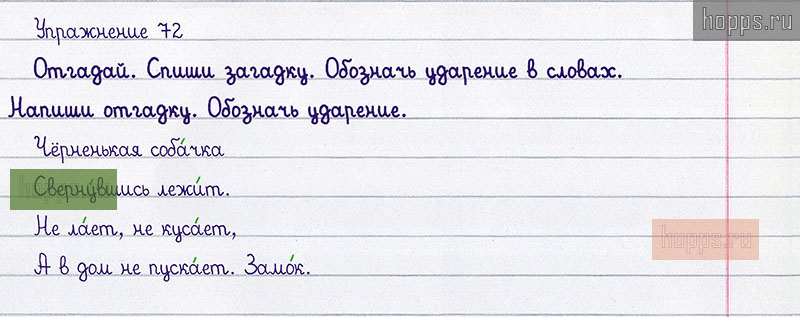 hopps.ru
Упражнение 72
Отгадай. Спиши загадку. Обозначь ударение в словах.
Напиши отгадку. Обозначь ударение.
Чёрненькая соба́чка
Сверну́вшись лежи́т.
Не ла́ет, не куса́ет,
hopps.ru
А в дом не пуска́ет. Замо́к.